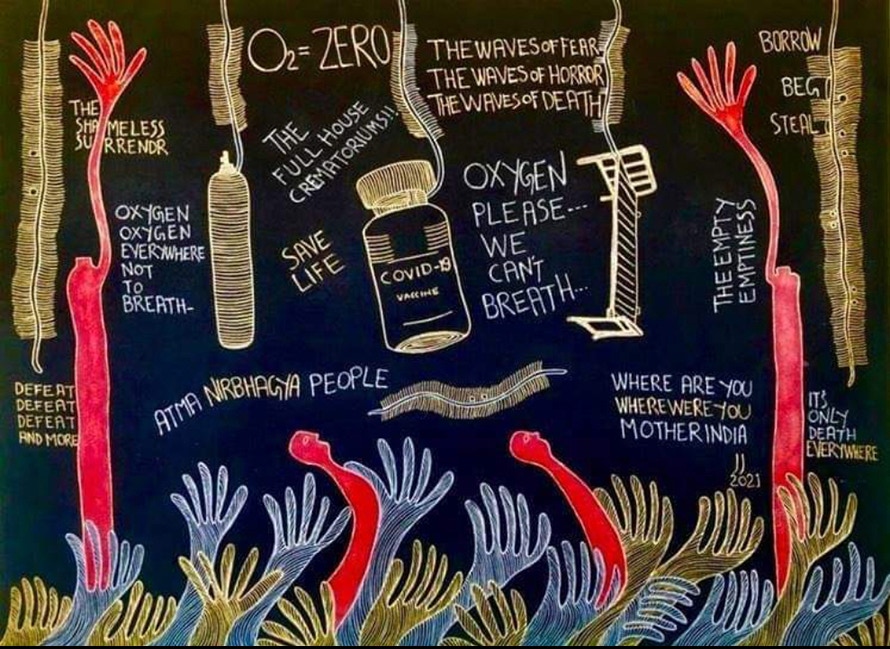 O2 = ZERO
THE WAVES OF FEAR
THE WAVES OF HORROR
THE WAVES OF DEATH
BORROW
BEG
STEAL
THE
SHAMELESS
SURRENDR
THE
FULL HOUSE
CREMATORIUMS!!
OXYGEN
OXYGEN
EVERYWHERE
NOT
TO
BREATH-
SAVE
LIFE
COVID-19
VACCINE
OXYGEN
PLEASE---
WE
CAN'T
BREATH...
THE EMPTY
EMPTINESS
DEFEAT
DEFEAT
DEFEAT
AND MORE
ATMA NIRBHAGYA PEOPLE
WHERE ARE YOU
WHERE WERE YOU
MOTHER INDIA
2021
IT'S
ONLY
DEATH
EVERYWHERE